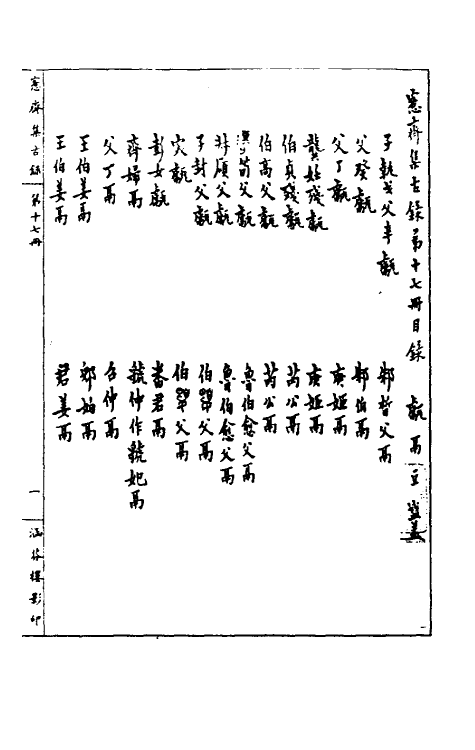 愙齋集古錄第十七冊目錄 甗 鬲 豆 盨 簠
子執戈父辛甗
父癸甗
父丁甗
龏姞殘甗
伯貞殘甗
伯高父甗
荀父甗
頎父甗
子封父甗
伏甗
彭女甗
齊婦鬲
父丁鬲
王伯姜鬲
王伯姜鬲
邾友父鬲
邾伯鬲
庚姬鬲
庚姬鬲
芮公鬲
芮公鬲
魯伯愈父鬲
魯伯愈父鬲
伯父鬲
伯父鬲
番君鬲
虢仲作虢妃鬲
召仲鬲
鄭姞鬲
君姜鬲
愙齋集古錄
第十七冊
一
涵芬樓影印